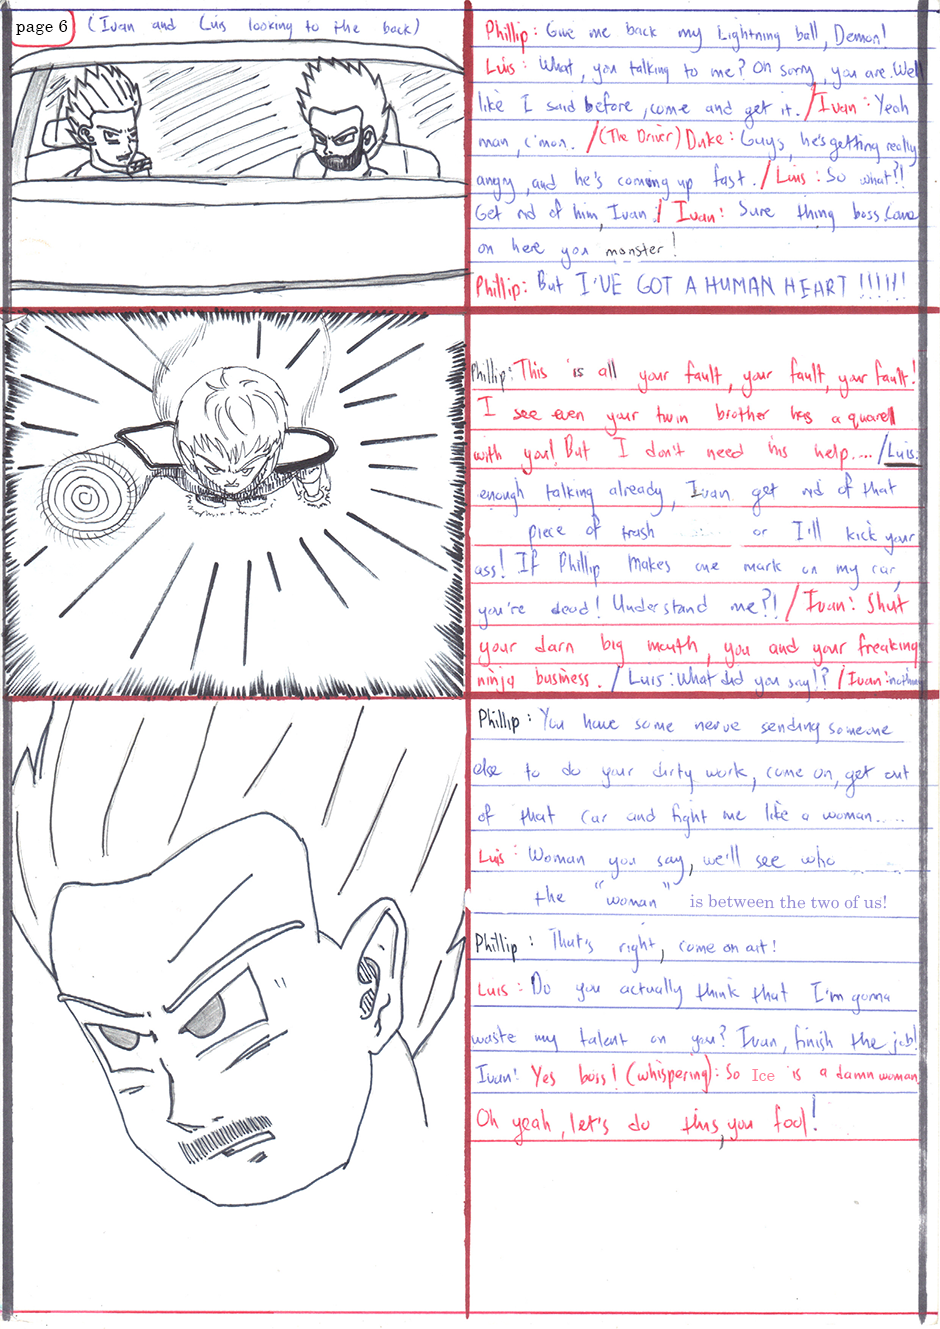 page 6
(Ivan and Luis looking to the back)
Phillip: Give me back my Lightning ball, Demon!
Luis: What, you talking to me? Oh sorry, you are. Well
like I said before, come and get it. / Ivan: Yeah
man, c'mon. / (The Driver) Duke: Guys, he's getting really
angry, and he's coming up fast. / Luis: So what?!
Get rid of him, Ivan! / Ivan: Sure thing boss. Come
on here you monster!
Phillip: But I'VE GOT A HUMAN HEART !!!!!!
Phillip: This is all your fault, your fault, your fault!
I see even your twin brother has a quarell
with you! But I don't need his help.... / Luis:
enough talking already, Ivan get rid of that
piece of trash or I'll kick your
ass! If Phillip makes one mark on my car,
you're dead! Understand me?! / Ivan: Shut
your darn big mouth, you and your freaking
ninja business. / Luis: What did you say!? / Ivan: nothing
Phillip: You have some nerve sending someone
else to do your dirty work, come on, get out
of that car and fight me like a woman.. ..
Luis: Woman you say, we'll see who
the "woman" is between the two of us!
Phillip: That's right, come on out!
Luis: Do you actually think that I'm gonna
waste my talent on you? Ivan, finish the job!
Ivan: Yes boss! (whispering): So Ice is a damn woman.
Oh yeah, let's do this, you fool!